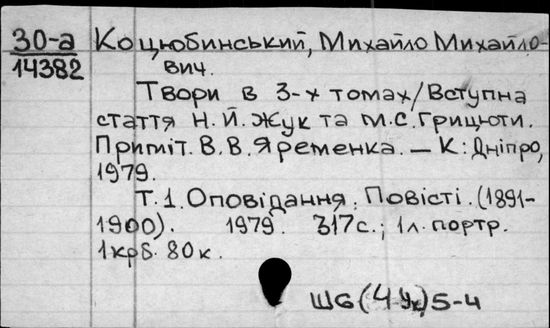 30-а Коцюбинський, Михайло Михайло-
14382 вич.
Твори в 3-х томах/Вступна
стаття Н.Й.Жук та М.С.Грицюти.
Приміт. В.В.Яременка. — К: Дніпро,
1979.
Т.1. Оповідання. Повісті. (1891-
1900). 1979. 317с.; 1л. портр.
1крб. 80к.
Ш6(4Ук)5-4